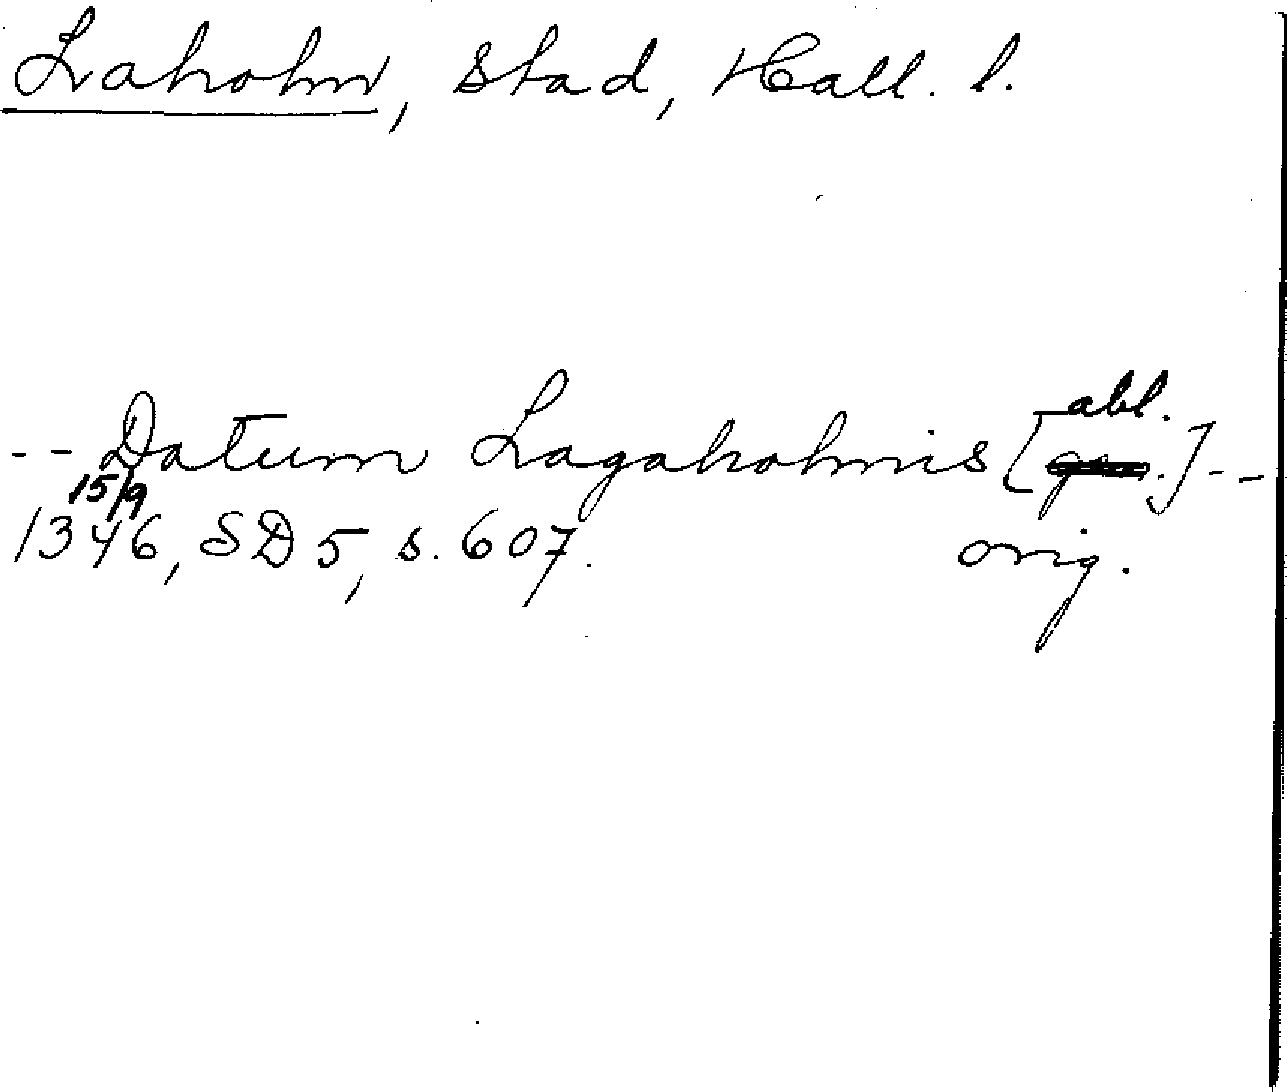 Laholm, stad, Hall. l.
-- Datum Lagaholmis [abl.] --
15/9
1346, SD 5, s. 607. orig.